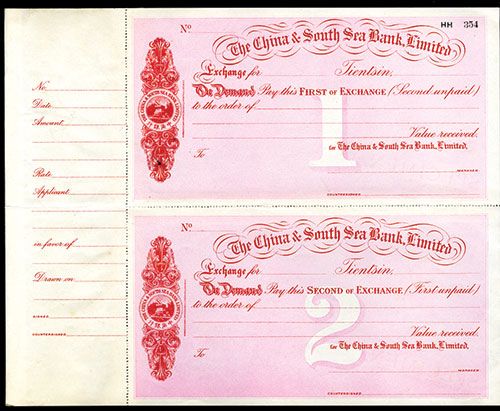 No.
Date
Amount
Rate
Applicant
in favor of
Drawn on
SIGNED
COUNTERSIGNED
No. HH 354
The China & South Sea Bank, Limited
Exchange for Tientsin,
On Demand Pay this FIRST of EXCHANGE (Second unpaid)
to the order of
1
Value received.
To for The China & South Sea Bank, Limited,
MANAGER.
COUNTERSIGNED
No.
The China & South Sea Bank, Limited
Exchange for Tientsin,
On Demand Pay this SECOND of EXCHANGE (First unpaid)
to the order of
2
Value received.
To for The China & South Sea Bank, Limited,
MANAGER.
COUNTERSIGNED